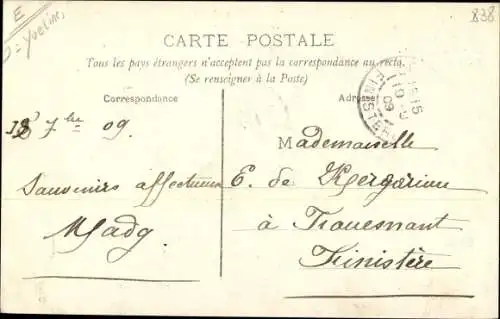 E
Yvelines
838
CARTE POSTALE
Tous les pays étrangers n'acceptent pas la correspondance au recto.
(Se renseigner à la Poste)
Correspondance
Adresse
FINISTERE
09
18 7bre 09.
Souvenirs affectueux
Madg
Mademoiselle
E. de Kergariou
à Fouesnant
Finistère